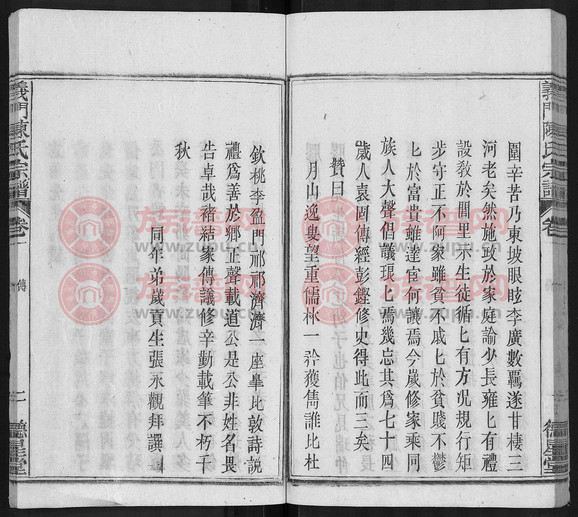 義門陳氏宗譜
卷一
傳
德星堂
圍辛苦乃東坡眼眩李廣數羈遂甘棲三
河老矣然施政於家庭諭少長雍匕有禮
設敎於閭里示生徒循匕有方况規行矩
步守正不阿衆雖貧不戚匕於貧賤不鬱
匕於富貴雖達宦何讓焉今歲修家乘同
族人大聲倡議瑣匕焉幾忘其爲七十四
歲人袁固傳經彭鏗修史得此而三矣
贊曰
月山逸叟望重儒林一矜獲雋誰比杜
欽桃李盈門祁祁濟濟一座皋比敦詩說
禮爲善於鄉正聲載道公是公非姓名畏
告卓哉褚結家傳議修辛勤載筆不朽千
秋
同年弟歲貢生張永觀拜譔
義門陳氏宗譜
卷一
傳
二
德星堂
族譜網
www.zupu.cn
族譜網
www.zupu.cn